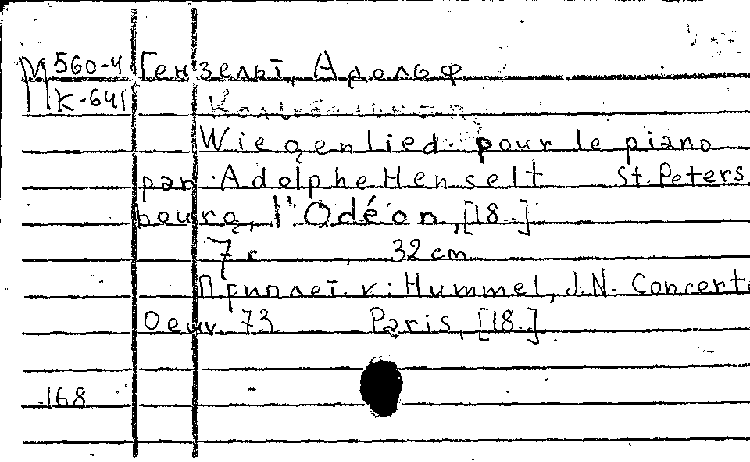 М 560-4 Гензельт, Адольф
П К-641 Колыбельная
Wiegenlied pour le piano
par Adolphe Henselt St. Peters
bourg, l'Odéon, [18..]
7 с 32 cm
Приплет. к: Hummel, J.N. Concert
Oeuv. 73 Paris, [18..]
168